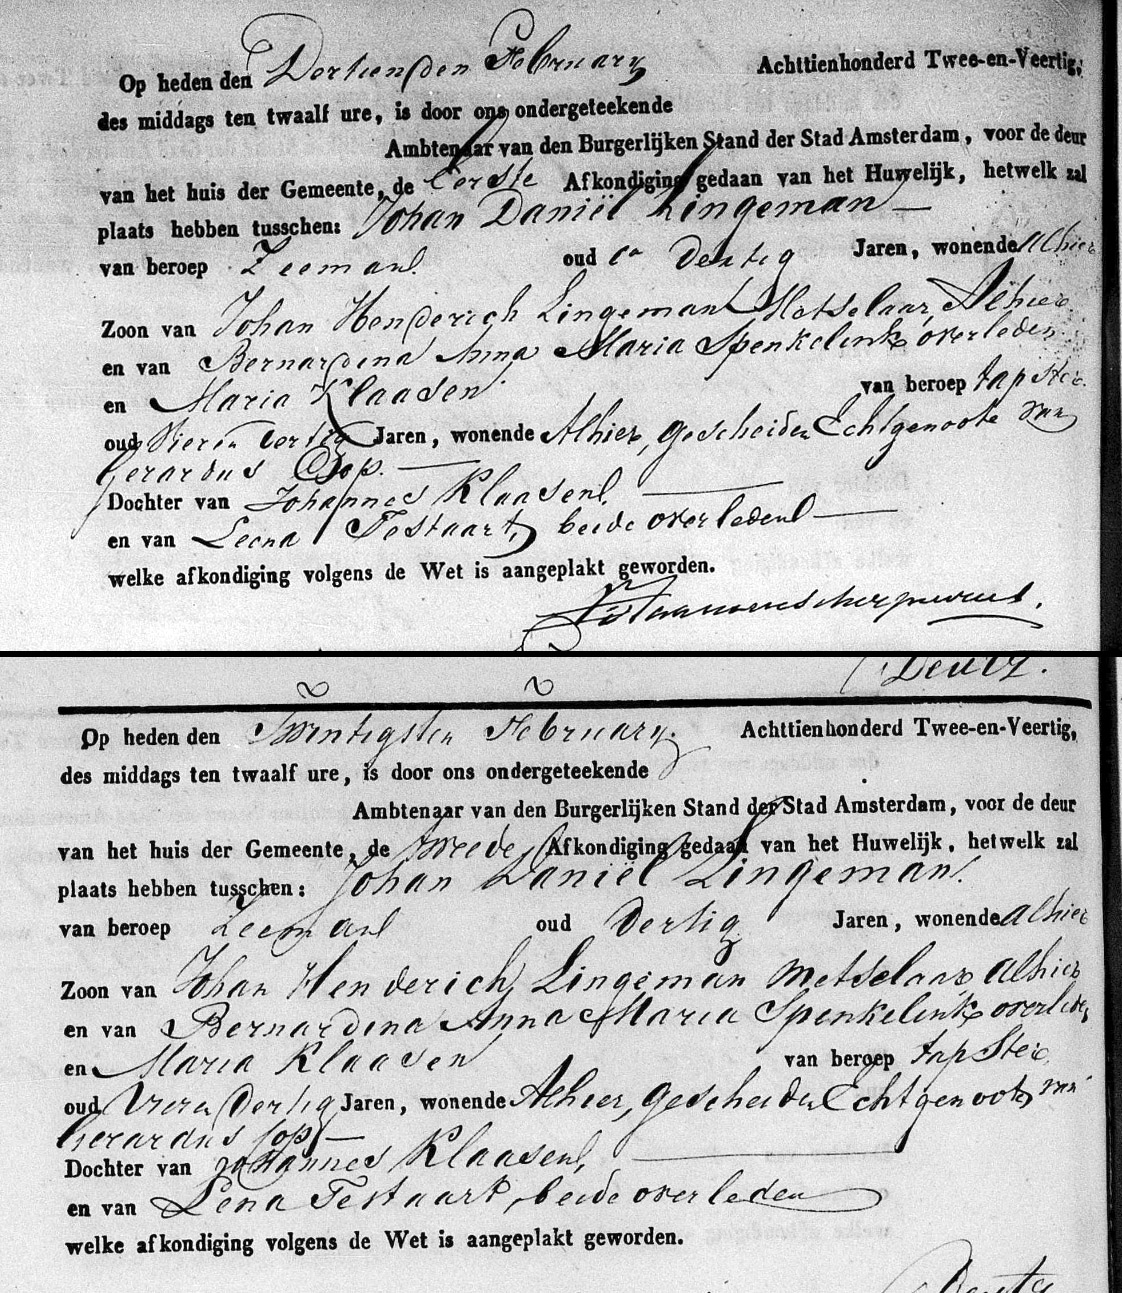 Op heden den Dertienden February Achttienhonderd Twee-en-Veertig,
des middags ten twaalf ure, is door ons ondergeteekende
Ambtenaar van den Burgerlijken Stand der Stad Amsterdam, voor de deur
van het huis der Gemeente, de Eerste Afkondiging gedaan van het Huwelijk, hetwelk zal
plaats hebben tusschen: Johan Daniël Lingeman
van beroep Zeeman oud Dertig Jaren, wonende Alhier
Zoon van Johan Henderich Lingeman Metselaar, Alhier
en van Bernardina Anna Maria Spenkelink overleden
en Maria Klaasen van beroep tapster
oud Vier en Dertig Jaren, wonende Alhier, gescheiden Echtgenoote van
Gerardus Sop.
Dochter van Johannes Klaasen,
en van Leena Testaart, beide overleden
welke afkondiging volgens de Wet is aangeplakt geworden.
Deutz.
Op heden den Twintigsten February Achttienhonderd Twee-en-Veertig,
des middags ten twaalf ure, is door ons ondergeteekende
Ambtenaar van den Burgerlijken Stand der Stad Amsterdam, voor de deur
van het huis der Gemeente, de tweede Afkondiging gedaan van het Huwelijk, hetwelk zal
plaats hebben tusschen: Johan Daniël Lingeman
van beroep Zeeman oud Dertig Jaren, wonende Alhier
Zoon van Johan Henderich Lingeman metselaar Alhier
en van Bernardina Anna Maria Spenkelink overleden
en Maria Klaasen van beroep tapster
oud Vier en Dertig Jaren, wonende Alhier, gescheiden Echtgenoote van
Gerardus Sop
Dochter van Johannes Klaasen,
en van Lena Testaart, beide overleden
welke afkondiging volgens de Wet is aangeplakt geworden.
Deutz